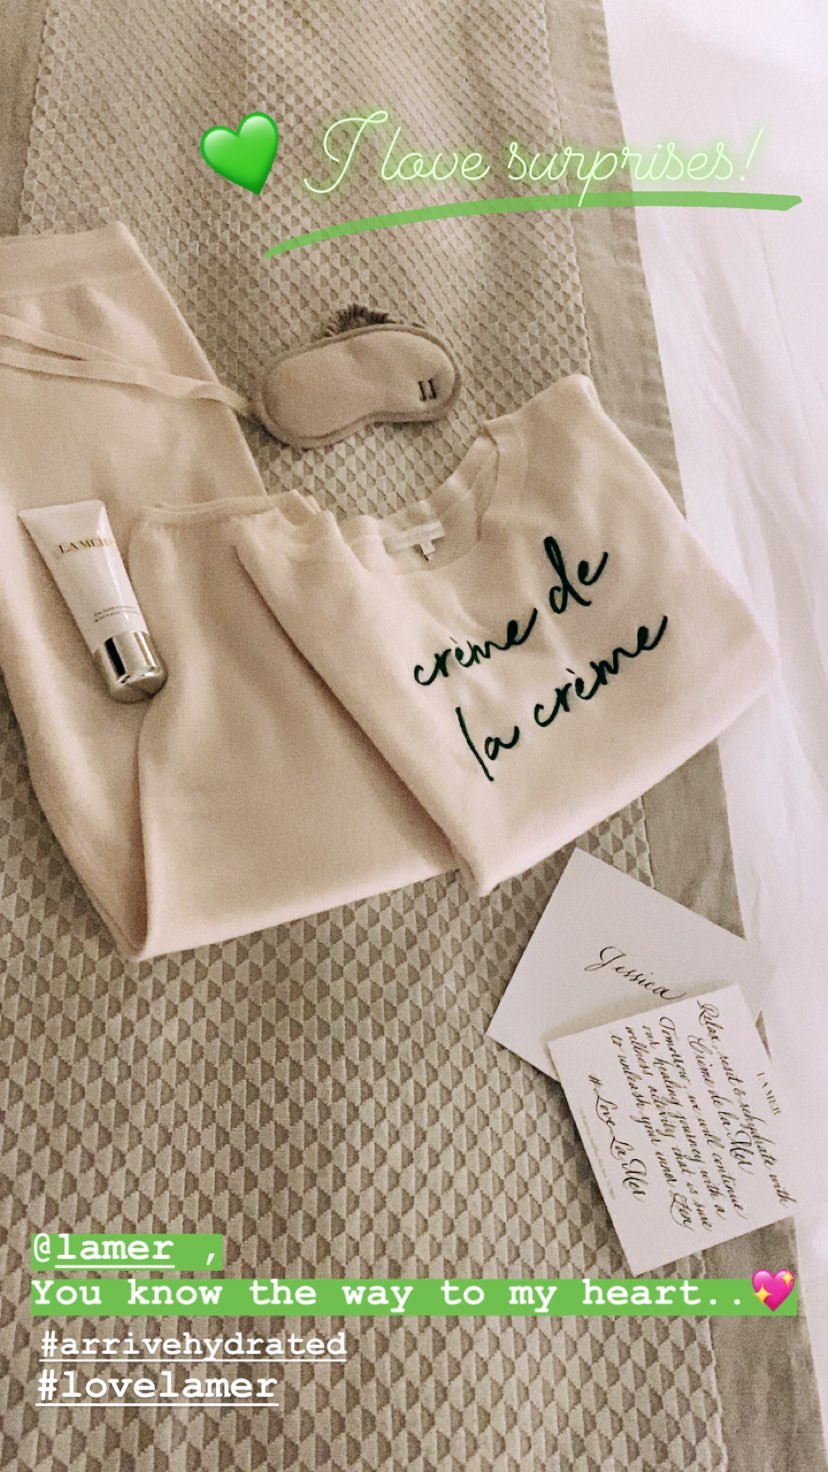 I love surprises!
JJ
LA MER
crème de
la crème
Jessica
LA MER
Relax, rest & rehydrate with
Crème de la Mer
Tomorrow, we will continue
our healing journey with a
wellness activity that is sure
to unleash your inner Zen
#LoveLaMer
@lamer ,
You know the way to my heart..💖
#arrivehydrated
#lovelamer